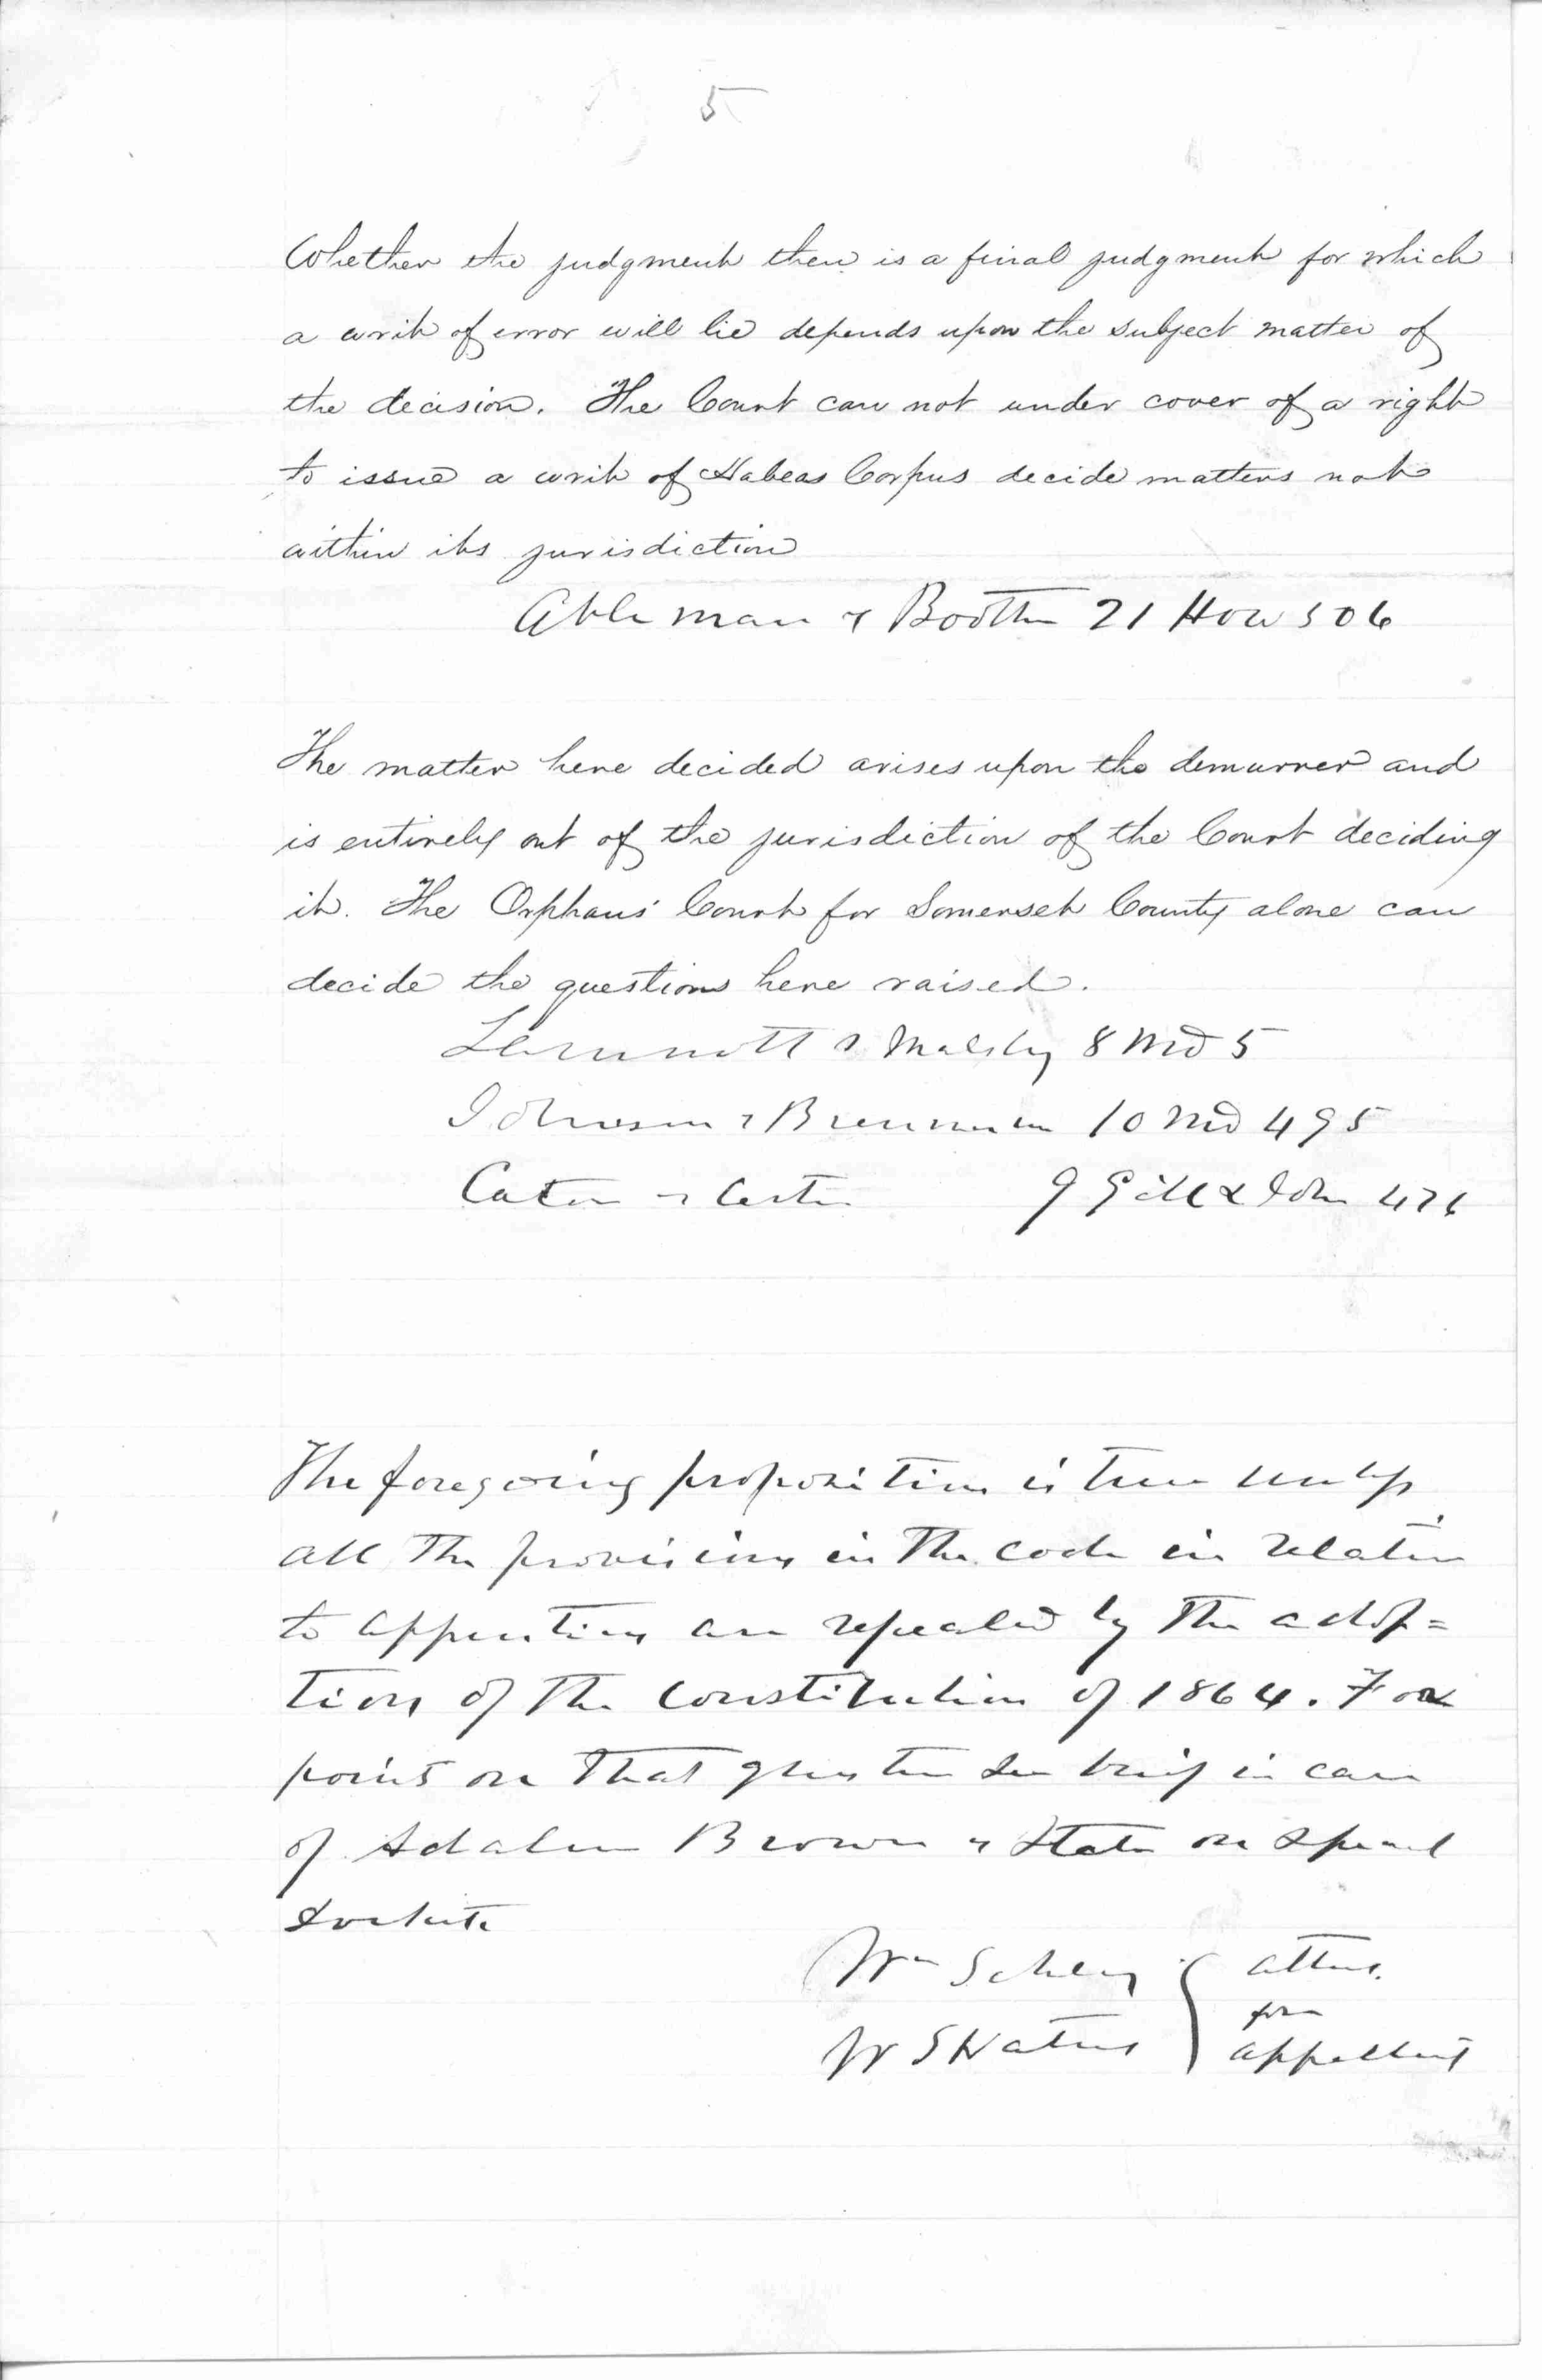 5
Whether the judgment then is a final judgment for which
a writ of error will lie depends upon the subject matter of
the decision. The Court can not under cover of a right
to issue a writ of Habeas Corpus decide matters not
within its jurisdiction
Ableman v Booth 21 How 506
The matter here decided arises upon the demurrer and
is entirely out of the jurisdiction of the Court deciding
it. The Orphans' Court for Somerset County alone can
decide the questions here raised.
8 Md 5
10 Md 495
9 Gill & John 476
The foregoing proposition is true unless
all the provisions in the code in relation
to apprentices are repealed by the adop=
tion of the constitution of 1864. For
points on that question see brief in case
of Adaline Brown v State on Special
Docket
Wm Schley } attys.
for
W S Waters } appellant